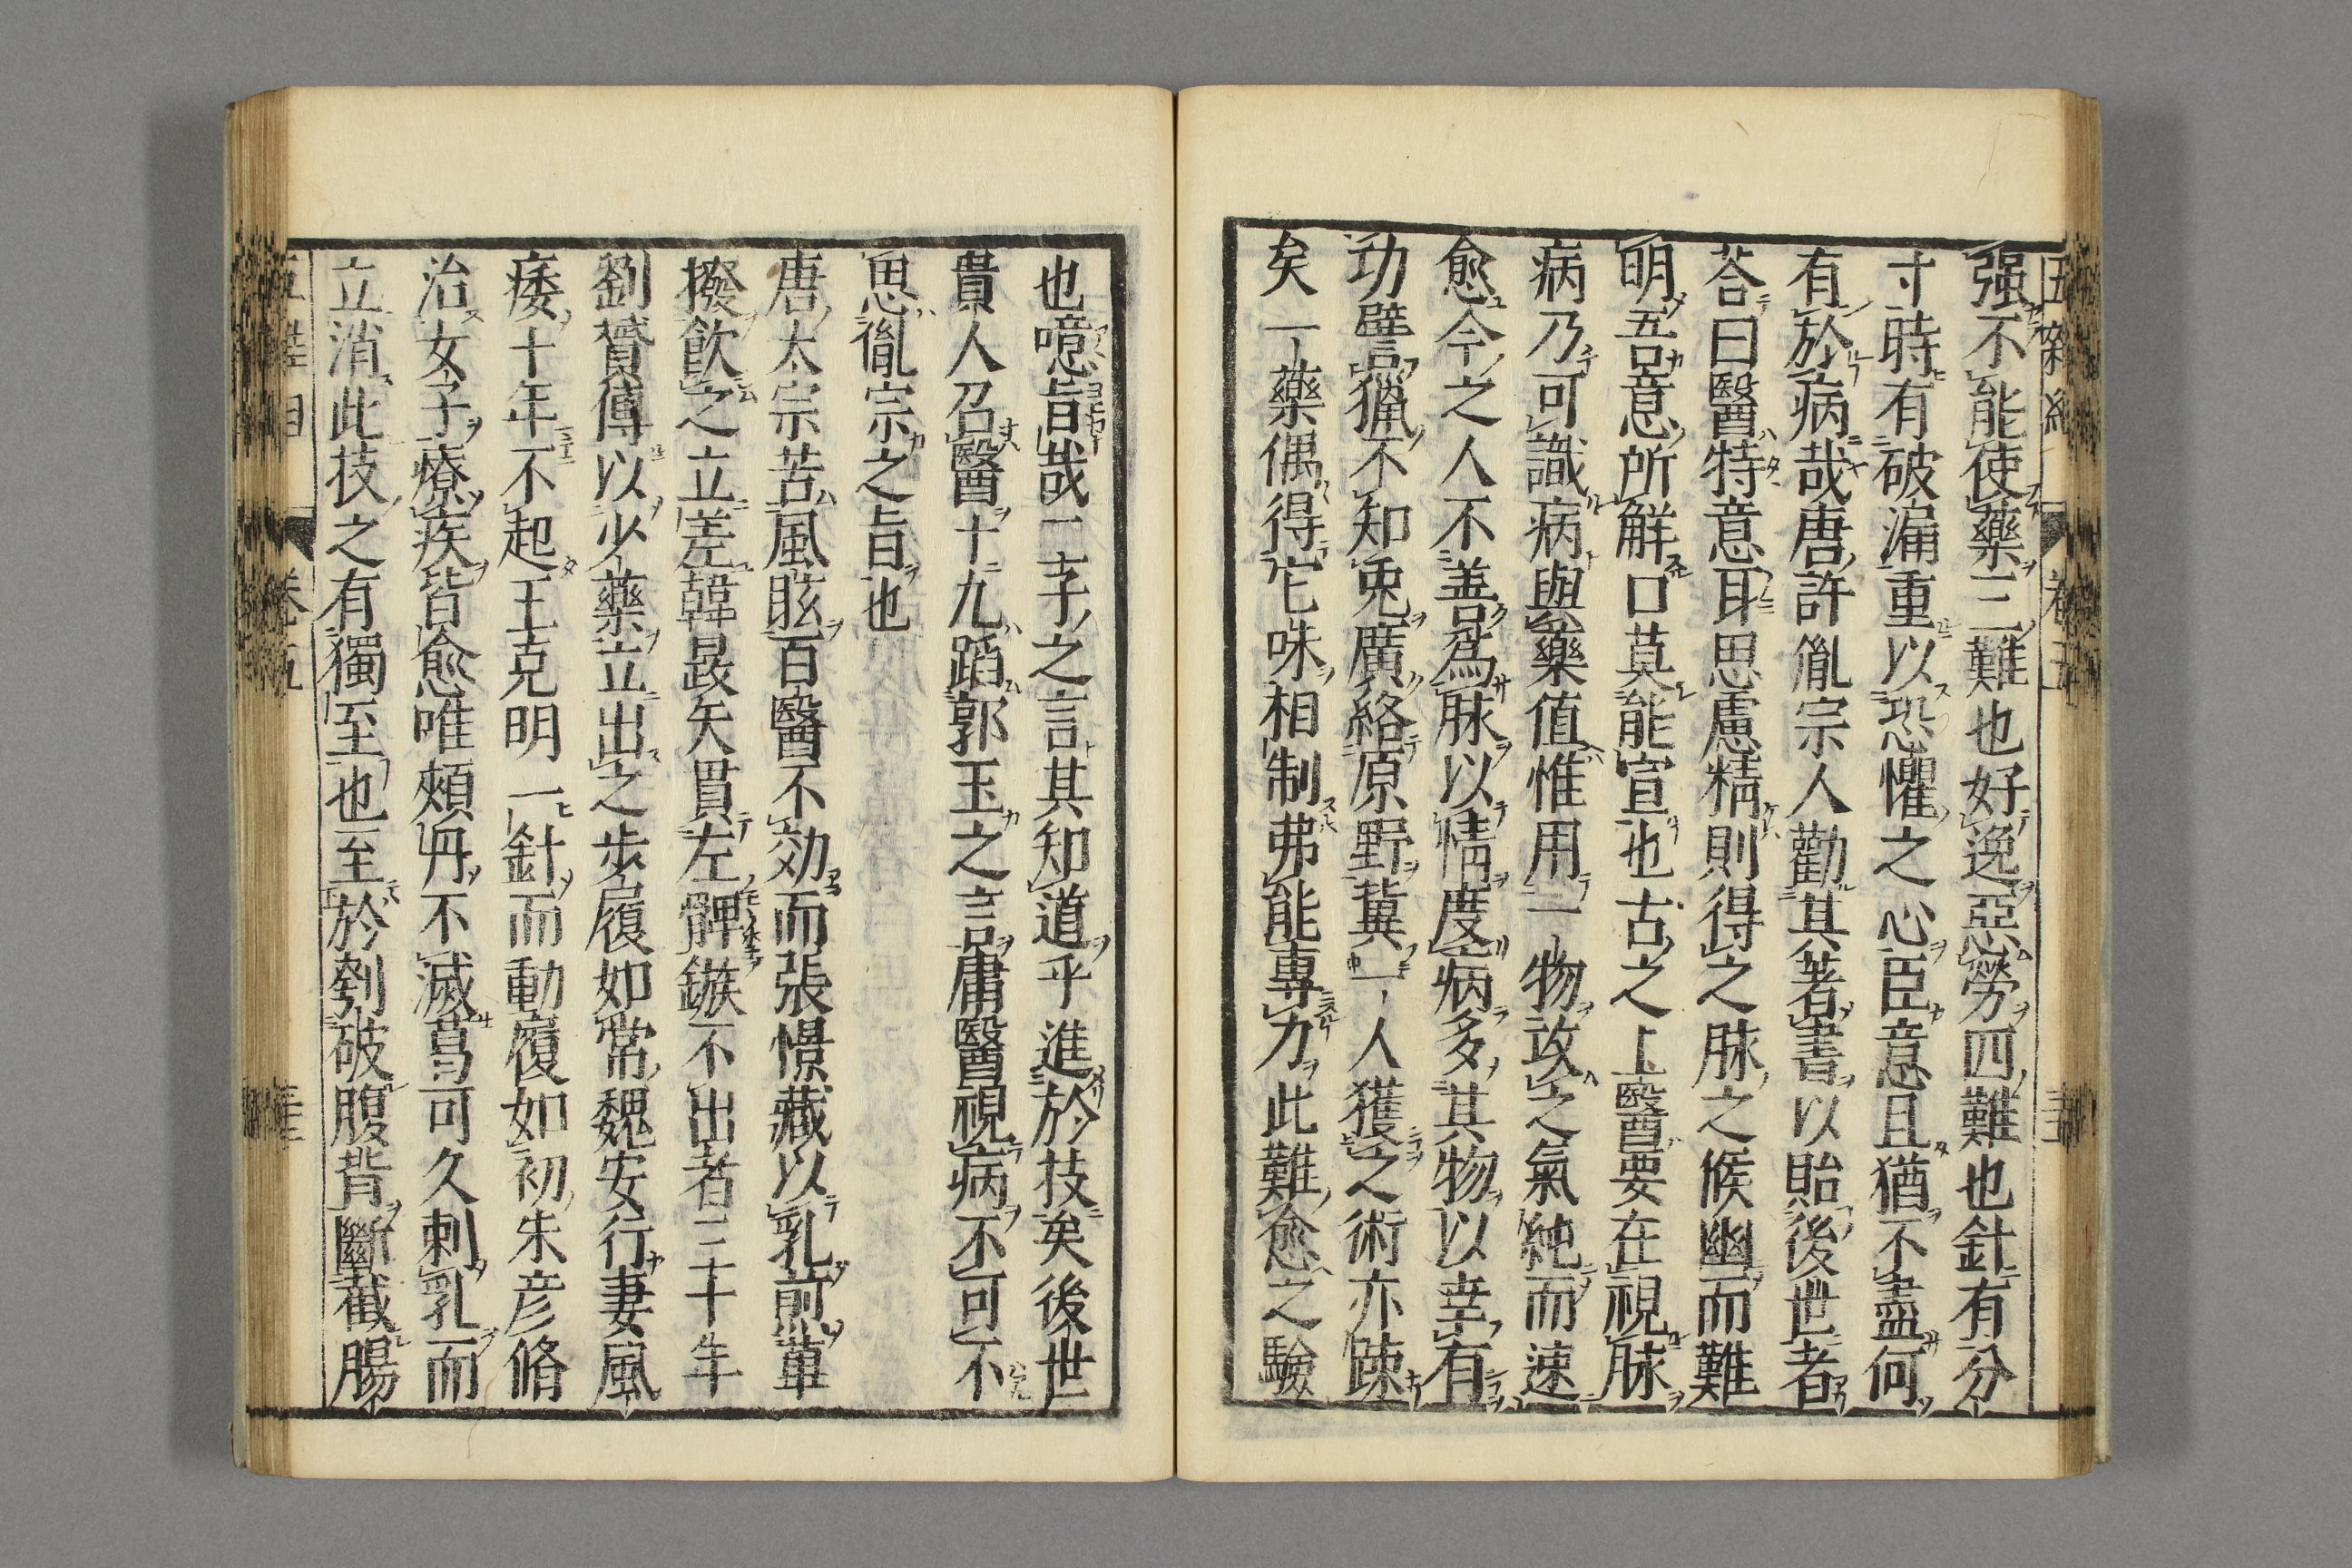 强不能使藥三難也好逸惡勞四難也針有分
寸時有破漏重以恐懼之心臣意且猶不盡何
有於病哉唐許胤宗人勸其著書以貽後世者
荅曰醫特意耳思慮精則得之脉之候幽而難
明吾意所解口莫能宣也古之上醫要在視脉
病乃可識病與藥値惟用一物攻之氣純而速
愈今之人不善爲脉以情度病多其物以幸有
功譬獵不知兎廣絡原野冀一人獲之術亦疎
矣一藥偶得它味相制弗能專力此難愈之驗
也噫旨哉二子之言其知道乎進於技矣後世
貴人召醫十九蹈郭玉之言庸醫視病不可不
思胤宗之旨也
唐太宗苦風眩百醫不効而張憬藏以乳煎蓽
撥飲之立差韓晸矢貫左髀鏃不出者三十年
劉贇傅以少藥立出之步履如常魏安行妻風
痿十年不起王克明一針而動履如初朱彦脩
治女子療疾皆愈唯頰丹不滅葛可久刺乳而
立消此技之有獨至也至於刳破腹背斷截腸
卷五